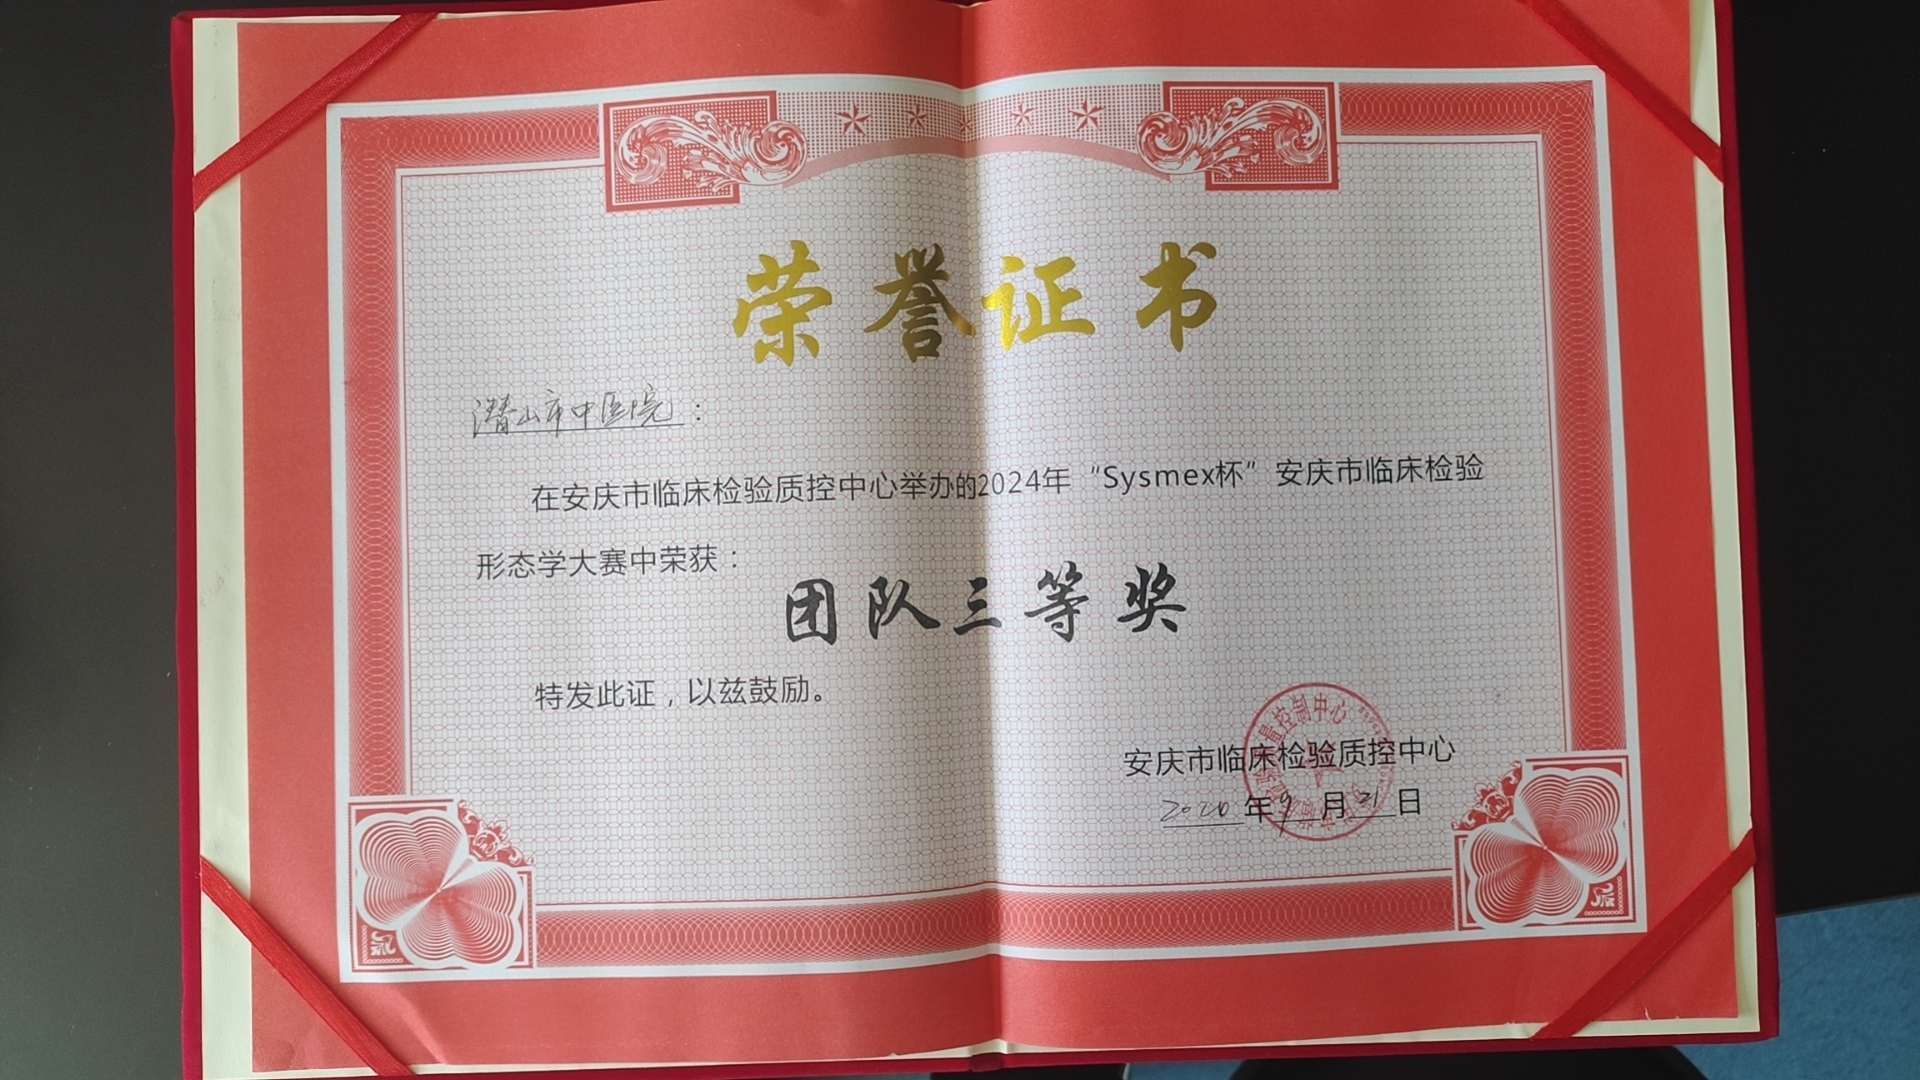 荣誉证书
潜山市中医院：
在安庆市临床检验质控中心举办的2024年“Sysmex杯”安庆市临床检验
形态学大赛中荣获：
团队三等奖
特发此证，以兹鼓励。
安庆市临床检验质控中心
年9月21日